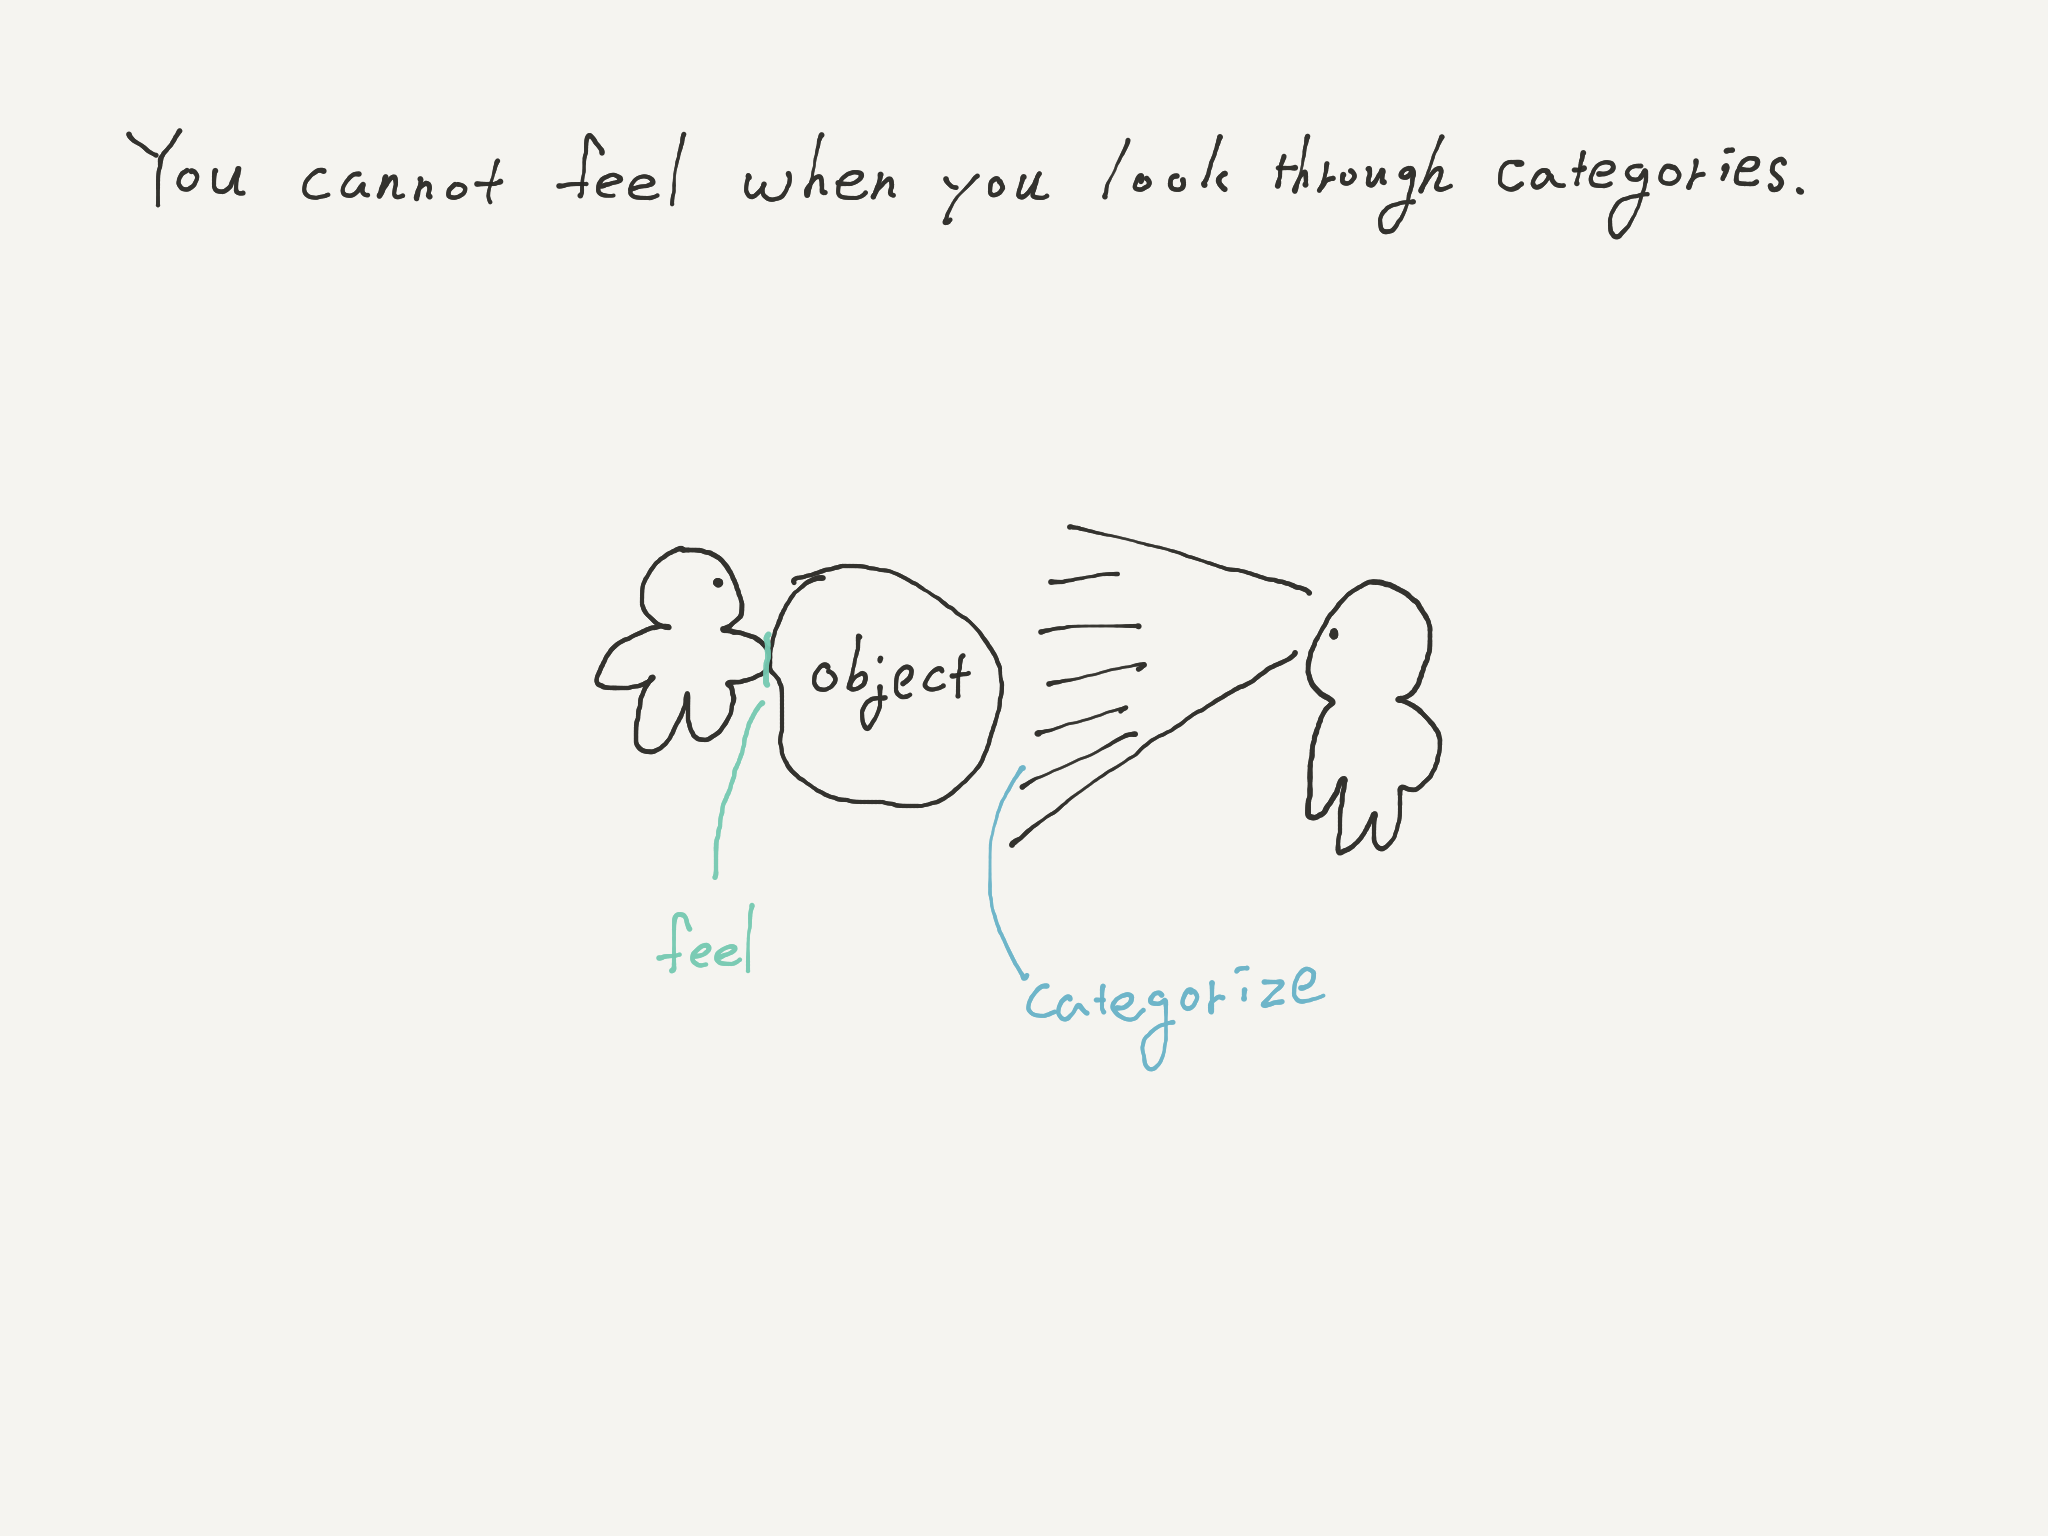 You cannot feel when you look through categories.
object
feel
categorize